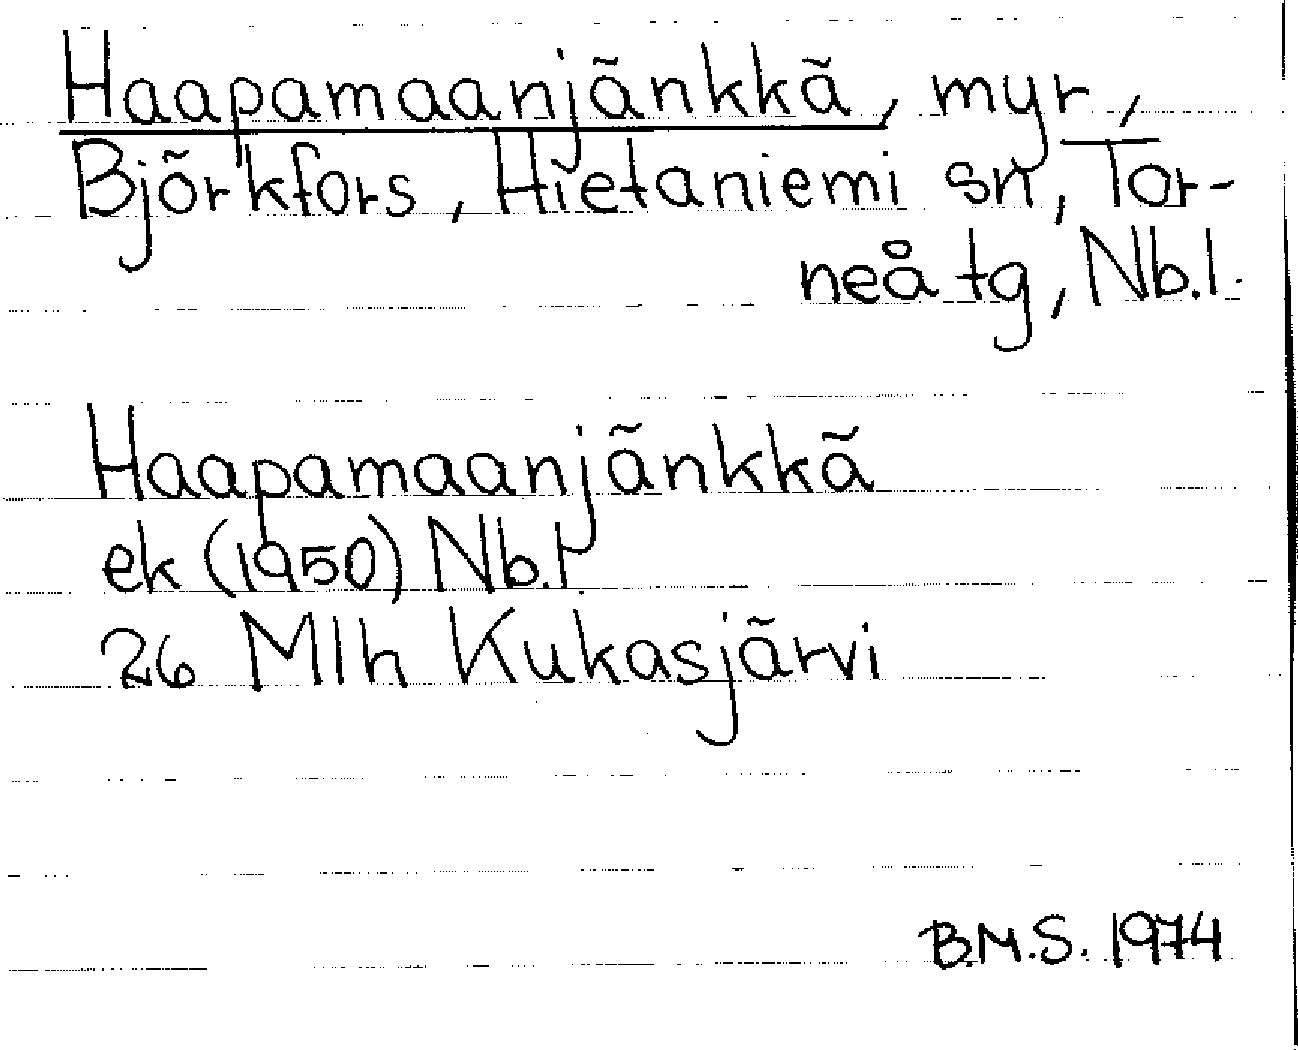 Haapamaanjänkkä, myr,
Björkfors, Hietaniemi sn, Tor-
neå tg, Nb.l.
Haapamaanjänkkä
ek (1950) Nb.l.
26 Mlh Kukasjärvi
B.M.S. 1974